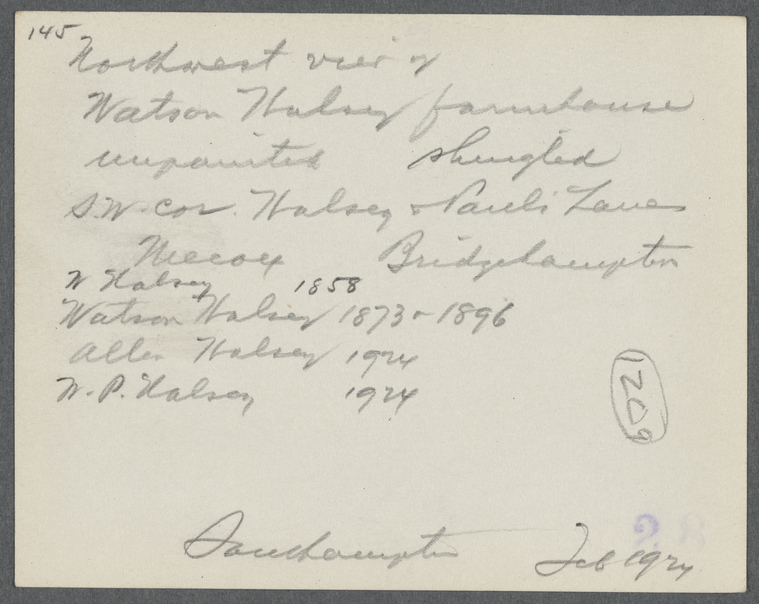 145
Northwest view of
Watson Halsey farmhouse
unpainted shingled
SW. cor. Halsey & Pauls Lanes
Mecox Bridgehampton
W Halsey 1858
Watson Halsey 1873 - 1896
Allen Halsey 1924
W. P. Halsey 1924
28
Southampton Feb 1924